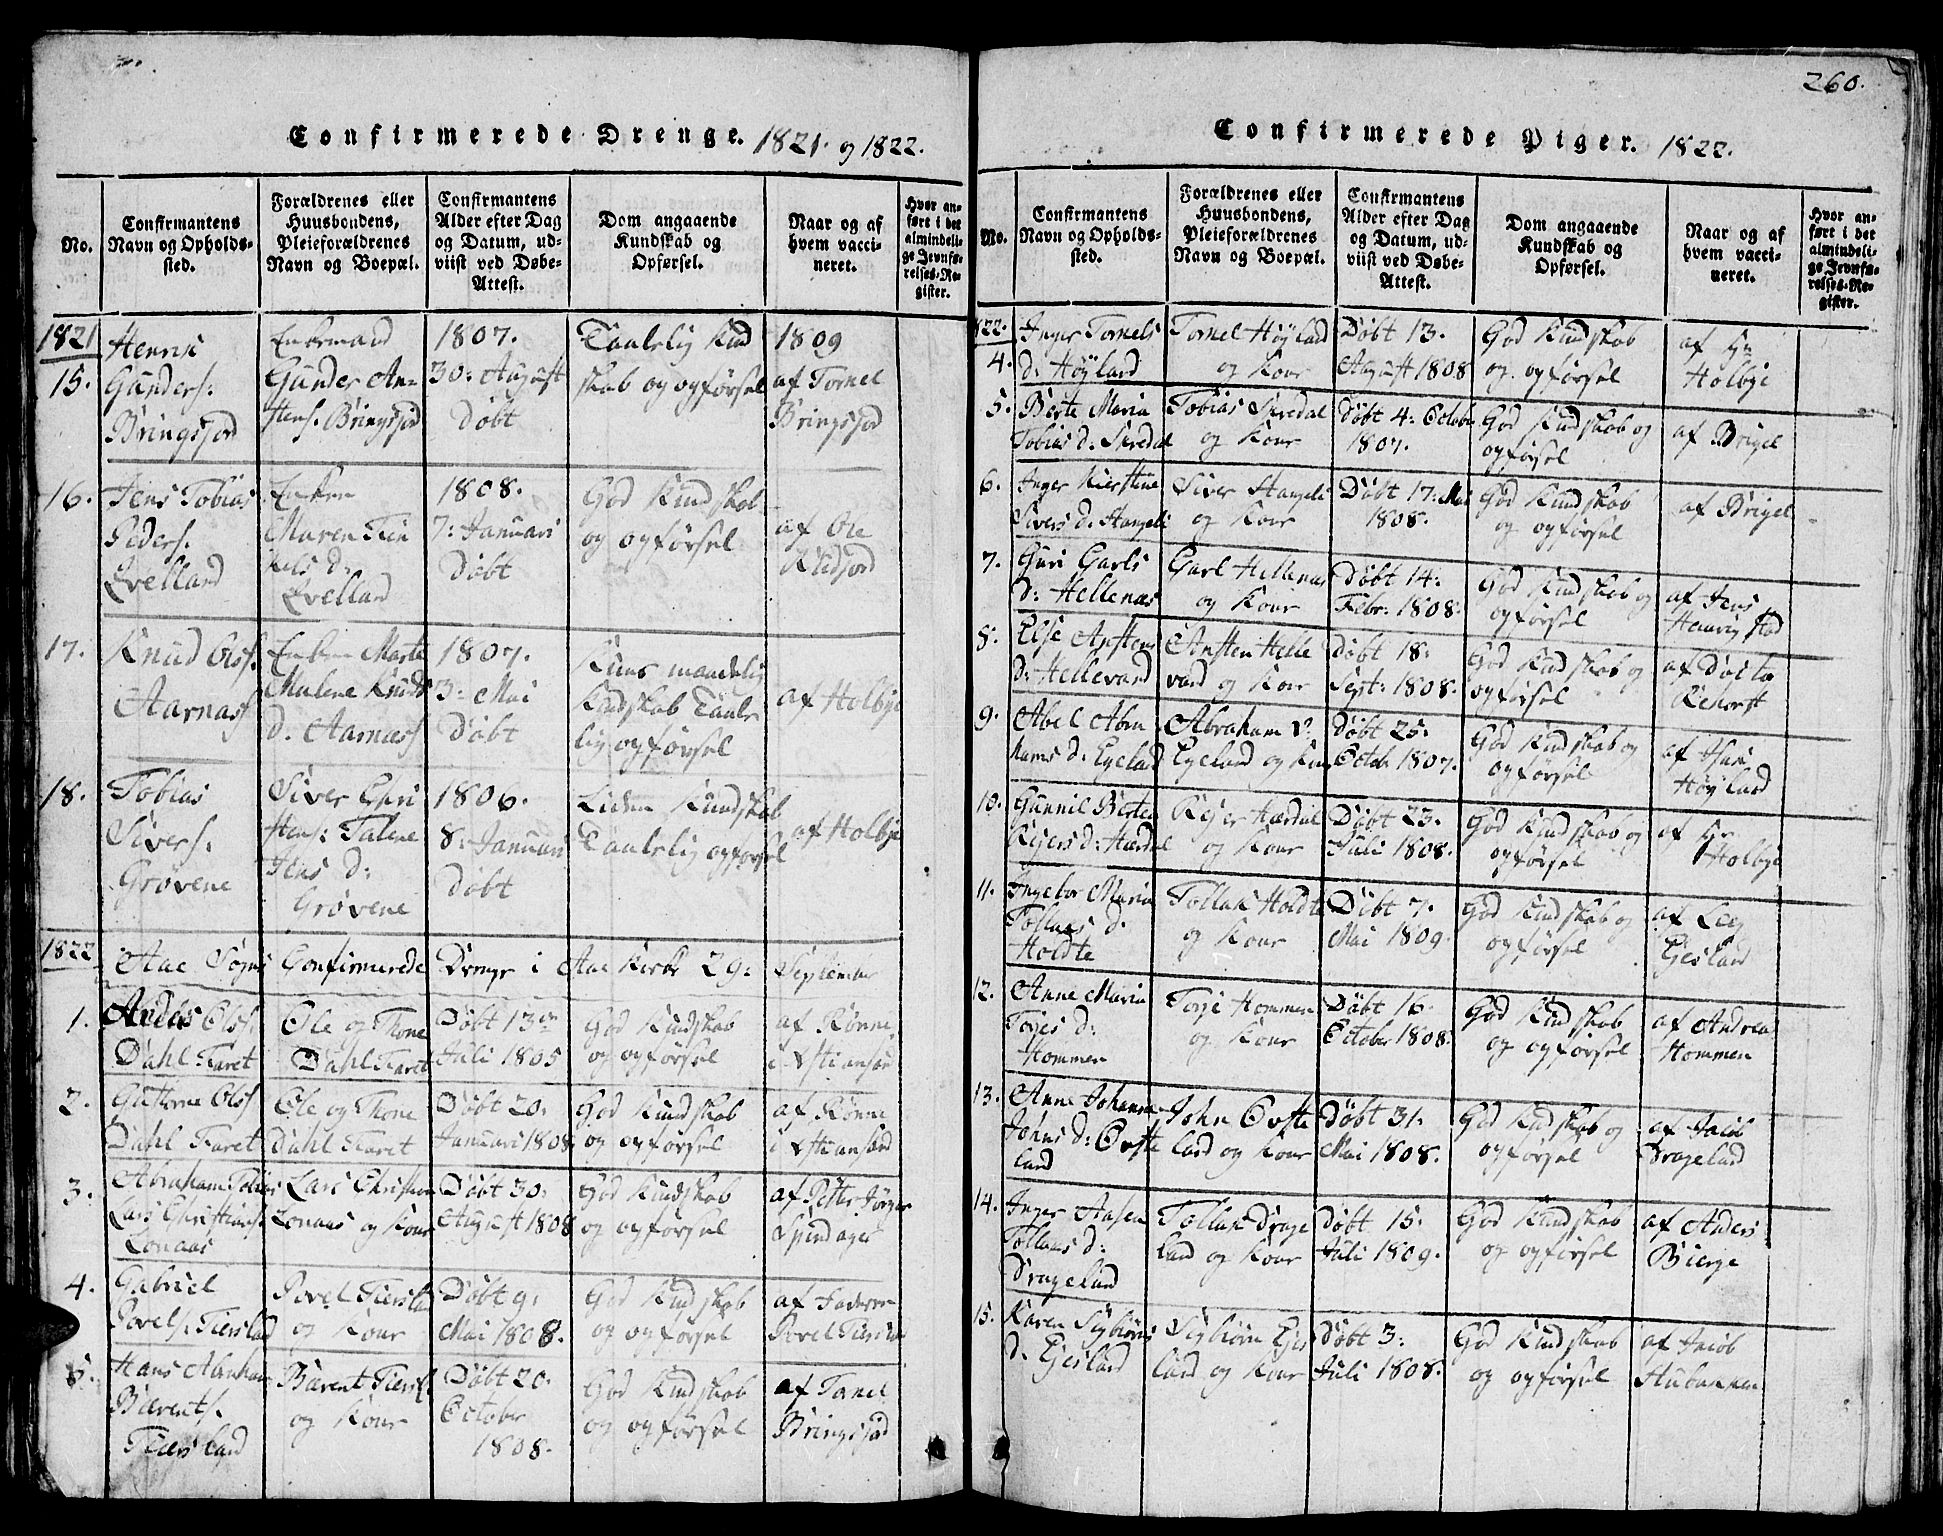 260.
Confirmerede Drenge. 1821. og 1822.
No.
Confirmantens
Navn og Opholds-
sted.
Forældrenes eller
Huusbondens,
Pleieforældrenes
Navn og Boepæl.
Confirmantens
Alder efter Dag
og Datum, ud-
viist ved Døbe-
Attest.
Dom angaaende
Kundskab og
Opførsel.
Naar og af
hvem vacci-
neret.
Hvor an-
ført i det
almindeli-
ge Jevnfø-
relses-Re-
gister.
1821
15.
Henrik
Gunders:
Bringsjord
Enkemand
Gunder An-
Bringsjord
1807.
30: August
Døbt
Taalelig Kund
skab og opførsel
1809
af Tornel
Bringsjord
16.
Jens Tobias
Peders:
Qvelland
Enken
Maren
d:
Qvelland
1808.
7: Januari
Døbt
God Kundskab
og opførsel
af Ole
17.
Knud Ols:
Aarnas
Enken Marte
Malene Knuds
d. Aarnæs
1807.
3: Mai
Døbt
Kuns maadelig
Kundskab Taale
lig opførsel
af Holbye
18.
Tobias
Sivers:
Grøvene
Siver
Hens: Talene
Jens d:
Grøvene
1806.
8: Januari
Døbt
Liden Kundskab
Taalelig opførsel
af Holbye
1822
Aae Sogns Confirmerede Drenge i Aae Kirke 29: September
1.
Anders Ols:
Dahl Faret
Ole og Thone
Dahl Faret
Døbt 13de
Juli 1805
God Kundskab
og opførsel
af Rønne
2.
Guttorm Ols:
Dahl Faret
Ole og Thone
Dahl Faret
Døbt 20:
Januari 1808
God Kundskab
og opførsel
af Rønne
3.
Abraham Tobias
Lars Christians:
Lonaas
Lars Christian
Lonaas og Kone
Døbt 30:
August 1808
God Kundskab
og opførsel
af Petter Jørgen
4.
Gabriel
Povels: Fiersland
Povel
og Kone
Døbt 9:
Mai 1808.
God Kundskab
og opførsel
af Faderen
Povel
5.
Hans Abraham
Bærents.
Fiersland
Bærent
og Kone
Døbt 20.
October
1808.
God Kundskab
og opførsel
af Tornel
Bringsjord
Confirmerede Piger. 1822.
No.
Confirmantens
Navn og Opholds-
sted.
Forældrenes eller
Huusbondens,
Pleieforældrenes
Navn og Boepæl.
Confirmantens
Alder efter Dag
og Datum, ud-
viist ved Døbe-
Attest.
Dom angaaende
Kundskab og
Opførsel.
Naar og af
hvem vacci-
neret.
Hvor an-
ført i det
almindeli-
ge Jevnfø-
relses-Re-
gister.
1822.
4.
Inger Tornels
d: Høyland
Tornel Høyland
og Kone
Døbt 13.
August 1808
God Kundskab
og opførsel
af Hr
Holbye
5.
Berte Maria
Tobias d: Skredal
Tobias Skredal
og Kone
Døbt 4: Octobr
1807.
God Kundskab og
opførsel
af Brigel
6.
Inger Kierstine
Sivers d: Stangeli
Siver Stangeli
og Kone
Døbt 17: Mai
1808.
God Kundskab
og opførsel
af Brigel
7.
Guri Carls
d: Hellenæs
Carl Hellenæs
og Kone
Døbt 14:
Febr: 1808.
God Kundskab og
opførsel
af Jens
8.
Else Anstens
d: Hellevard
Ansten Helle
vard og Kone
Døbt 18:
Sept: 1808.
God Kundskab og
opførsel
af
9.
Abel Abra
hams d: Egeland
Abraham
Egeland og Kone
Døbt 25:
Octobr 1807.
God Kundskab og
opførsel
af
Høyland
10.
Gunnil Berte
Reiers d: Hærdal
Reier Hærdal
og Kone
Døbt 23.
Juli 1808.
God Kundskab og
opførsel
af Hr
Holbye
11.
Ingebor Maria
Tollaks d.
Holdte
Tollak Holdte
og Kone
Døbt 7.
Mai 1809.
God Kundskab og
opførsel
af
12.
Anne Maria
Torjes d:
Hommen
Torje Hommen
og Kone
Døbt 16.
October 1808.
God Kundskab
og opførsel
af Andreas
Hommen
13.
Anne Johanne
Johns d: Ovste
land
John Ovste
land og Kone
Døbt 31.
Mai 1808.
God Kundskab og
opførsel
af Jacob
Drageland
14.
Inger Aasen
Tollaks d:
Drageland
Tollak Drage
land og Kone
Døbt 15:
Juli 1809.
God Kundskab
og opførsel
af Anders
Bierge
15.
Karen Sigbiørns
d. Egesland
Sigbiørn Eges
land og Kone
Døbt 3:
Juli 1808.
God Kundskab
og opførsel
af Jacob